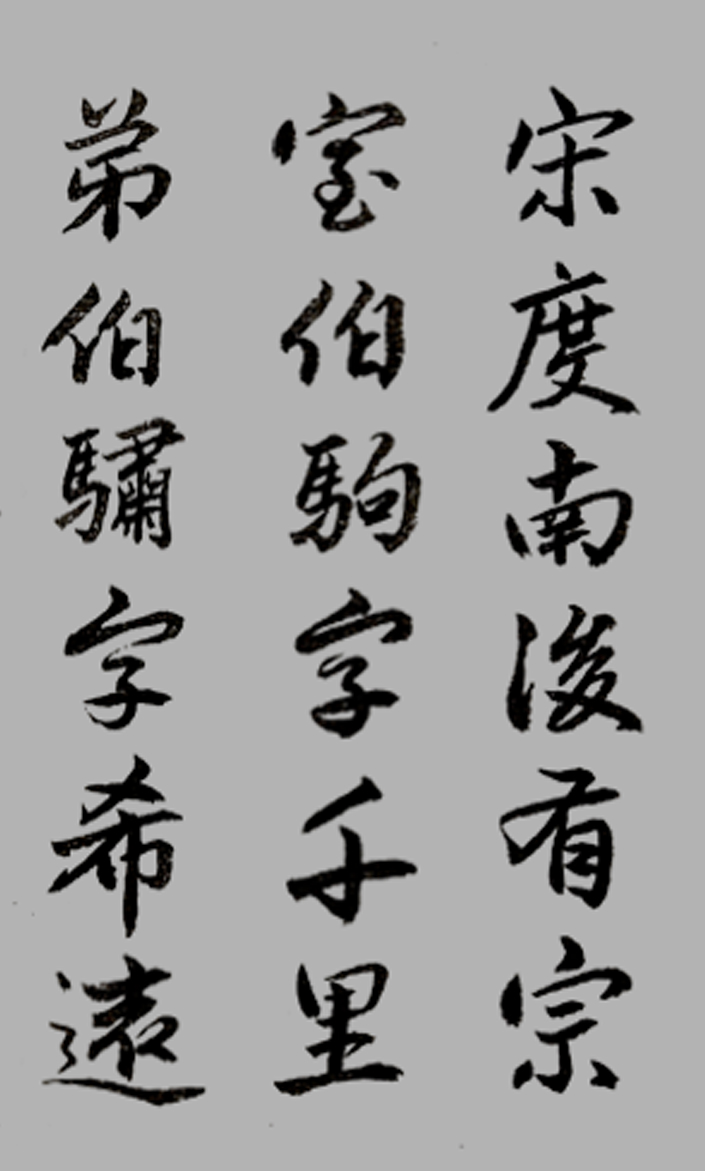 宋度南浚有宗
室伯駒字千里
弟伯驌字希遠